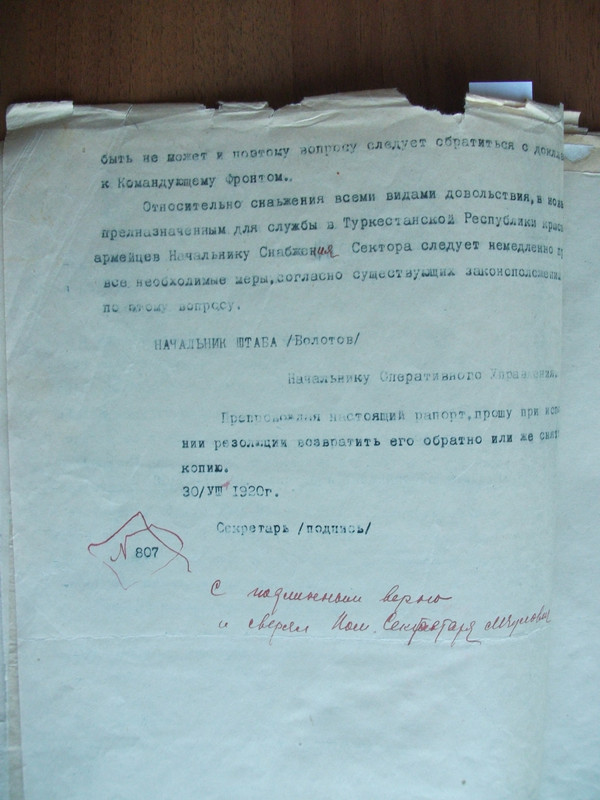 быть не может и поэтому вопросу следует обратиться с докла
к Командующему Фронтом..
Относительно снабжения всеми видами довольствия, в
предназначенным для службы в Туркестанской Республики
армейцев Начальнику Снабжения Сектора следует немедленно
все необходимые меры, согласно существующих законоположени
по этому вопросу.
НАЧАЛЬНИК ШТАБА /Болотов/
Начальнику Оперативного Управления.
Препровождая настоящий рапорт, прошу при
нии резолюции возвратить его обратно или же
копию.
30/УШ 1920г.
Секретарь /подпись/
N 807
С подлинным верно
и сверял Пом. Секретаря